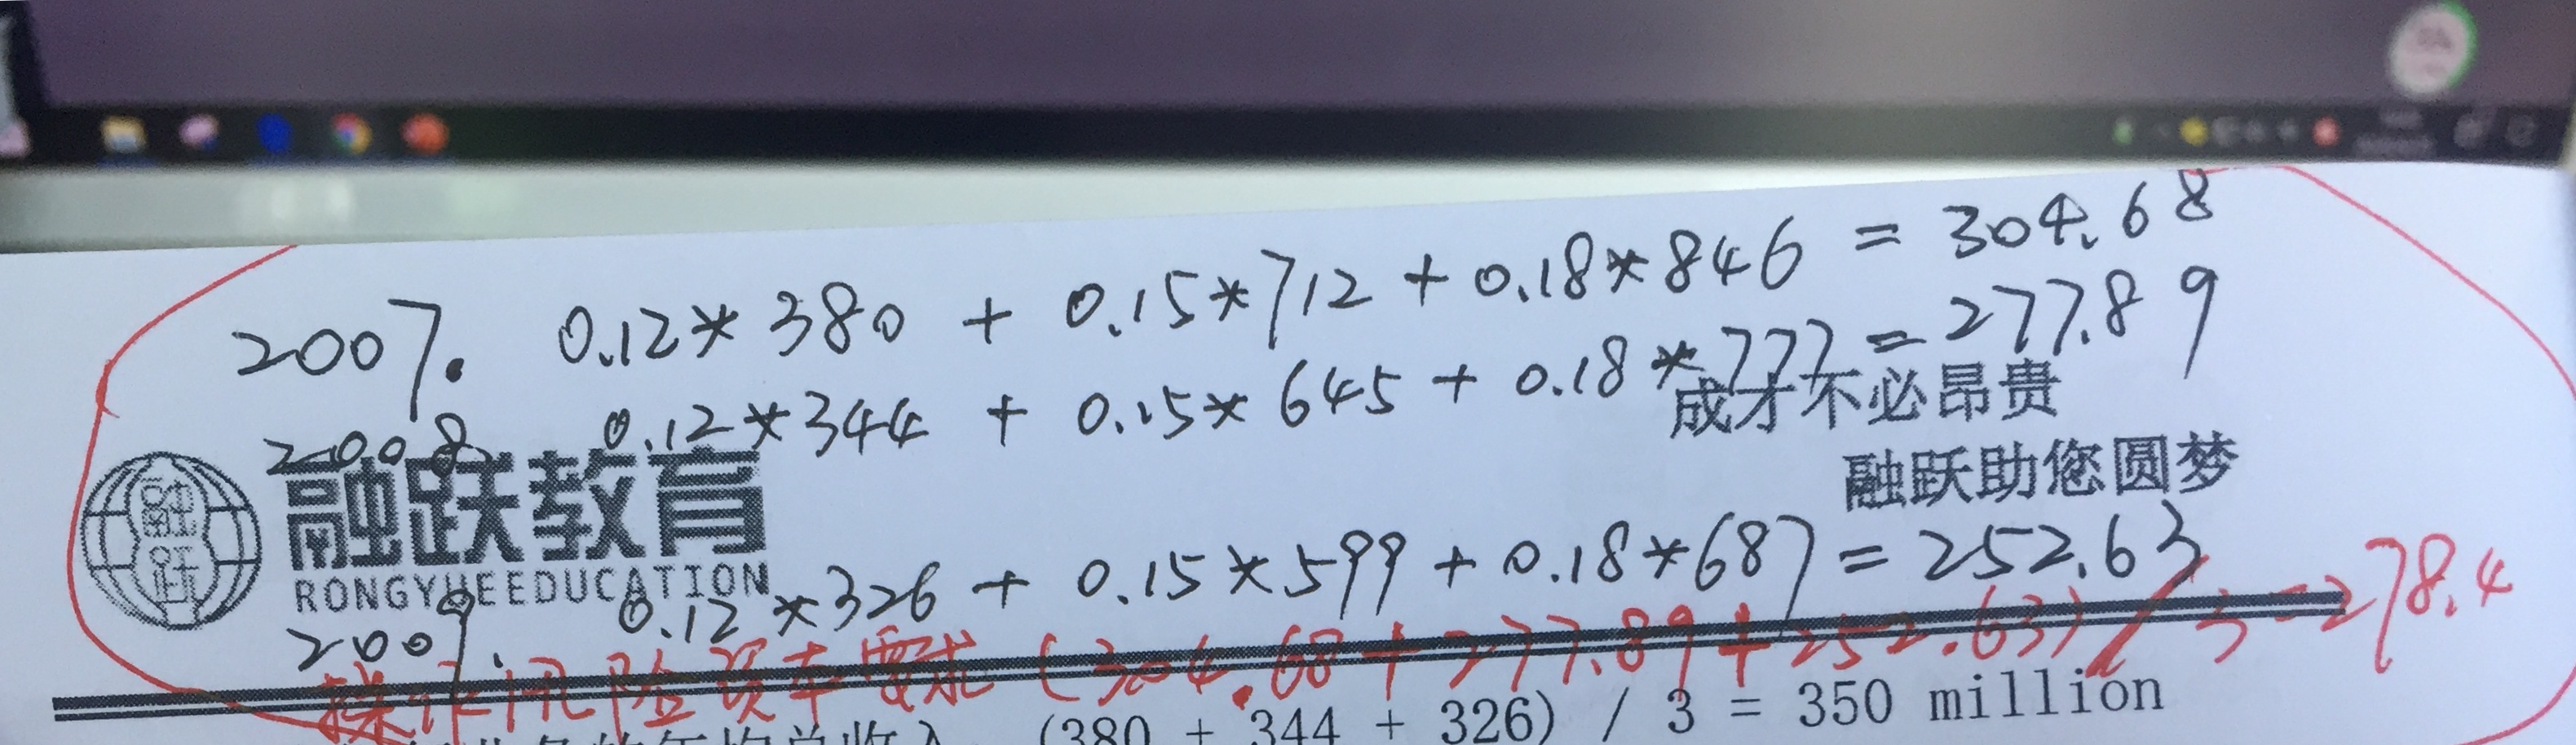 2007. 0.12*380 + 0.15*712 + 0.18*846 = 304.68
2008. 0.12*344 + 0.15*645 + 0.18*777 = 277.89
成才不必昂贵
融跃教育
融跃助您圆梦
RONGYUEEDUCATION
2009. 0.12*326 + 0.15*599 + 0.18*687 = 252.63
操作风险资本要求 (304.68+277.89+252.63)/3=278.4
(380 + 344 + 326) / 3 = 350 million